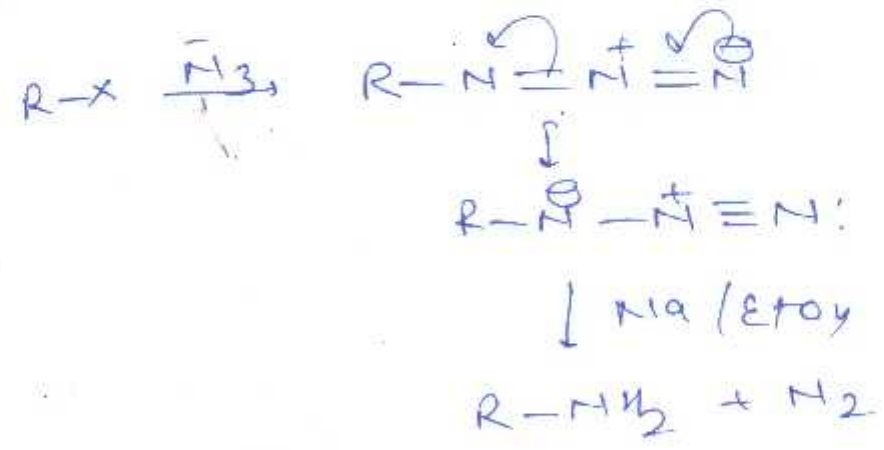 R-X N̄3 → R-N=N⁺=N⊖
R-N⊖-N⁺≡N:
↓ Na/EtOH
R-NH2 + N2